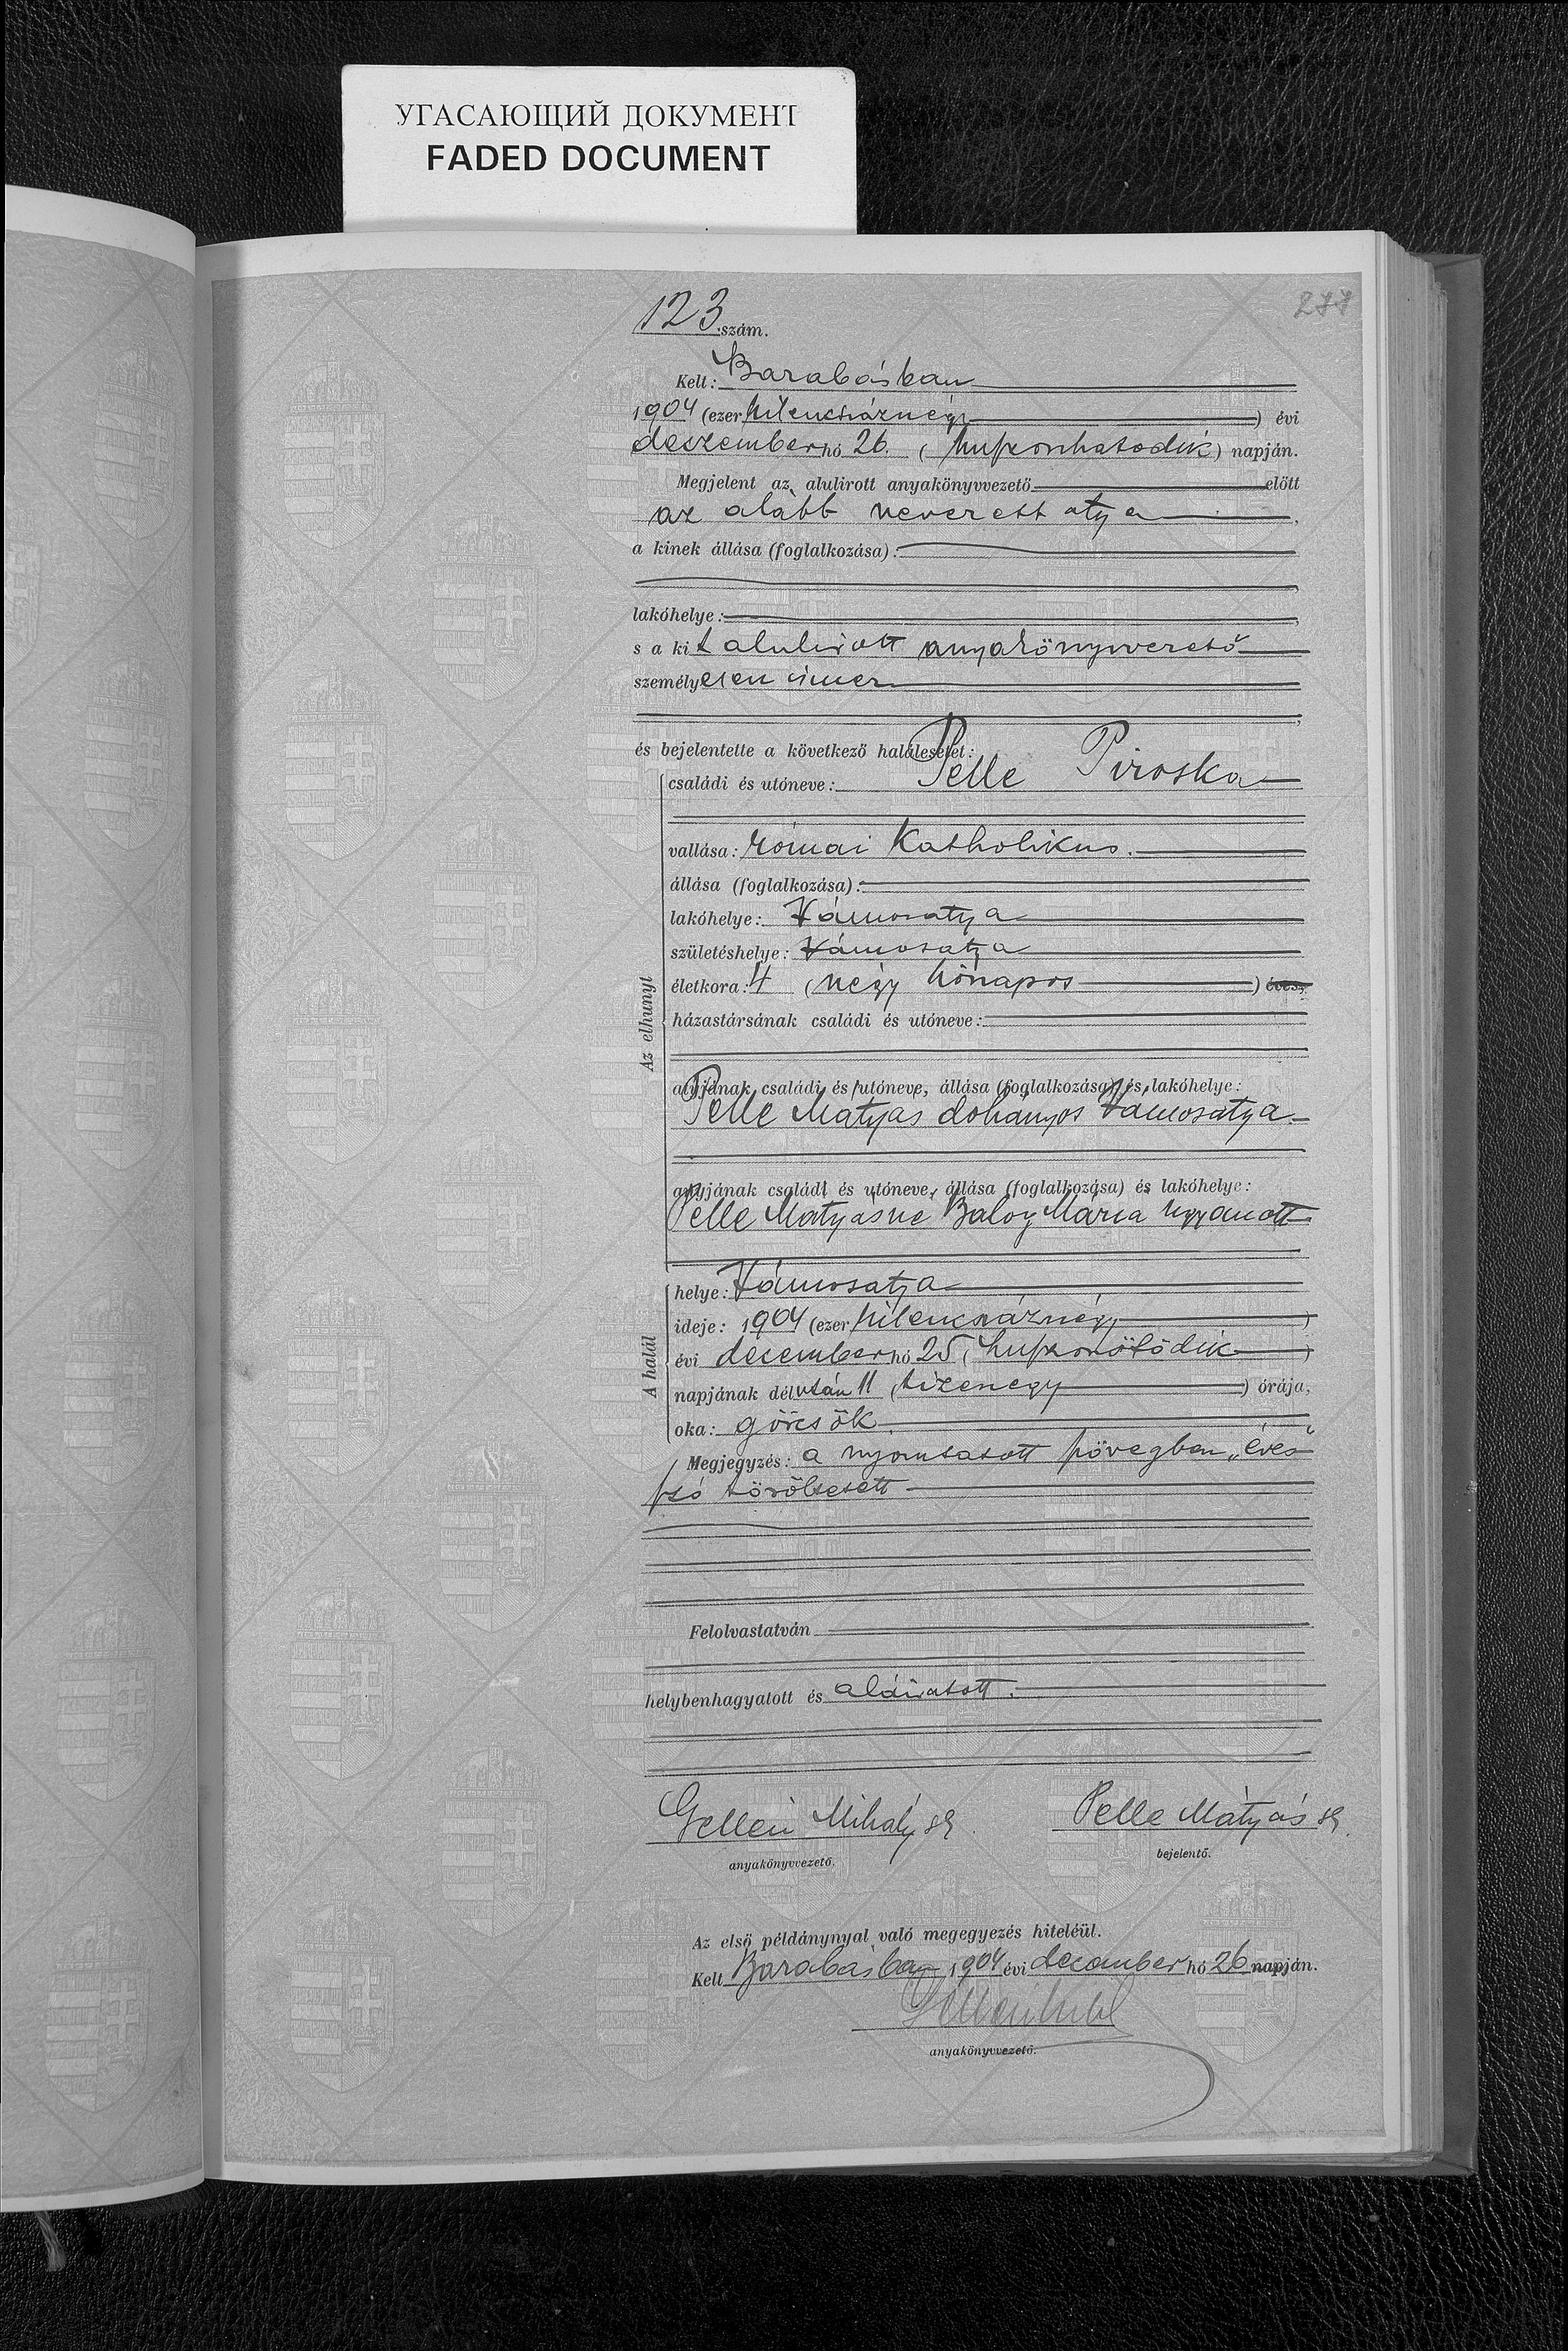 УГАСАЮЩИЙ ДОКУМЕНТ
FADED DOCUMENT
277
123 szám.
Kelt: Barabásban
1904 (ezer kilencszáznégy) évi
deszember hó 26. (huszonhatodik) napján.
Megjelent az alulirott anyakönyvvezető előtt
az alább nevezett atya,
a kinek állása (foglalkozása):
lakóhelye:
s a kit alulirott anyakönyvvezető
személyesen ismer
és bejelentette a következő halálesetet:
Az elhunyt
családi és utóneve: Pelle Piroska
vallása: római katholikus.
állása (foglalkozása):
lakóhelye: Vámosatya
születéshelye: Vámosatya
életkora: 4 (négy hónapos) éves,
házastársának családi és utóneve:
atyjának családi és utóneve, állása (foglalkozása) és lakóhelye:
Pelle Mátyás dohányos Vámosatya
anyjának családi és utóneve, állása (foglalkozása) és lakóhelye:
Pelle Mátyásné Balog Mária ugyanott
A halál
helye: Vámosatya
ideje: 1904 (ezer kilencszáznégy)
évi december hó 25 (huszonötödik)
napjának délután 11 (tizenegy) órája,
oka: görcsök.
Megjegyzés: a nyomtatott szövegben „éves"
szó töröltetett
Felolvastatván
helybenhagyatott és aláiratott.
Gelléri Mihály sk.
anyakönyvvezető.
Pelle Mátyás sk.
bejelentő.
Az első példánynyal való megegyezés hiteléül.
Kelt Barabásban 1904 évi december hó 26 napján.
anyakönyvvezető.